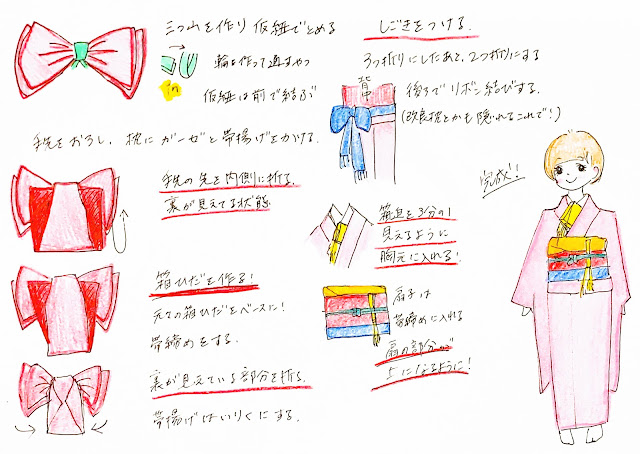 三つ山を作り仮紐でとめる
輪を作って通すやつ
仮紐は前で結ぶ
手先をおろし、枕にガーゼと帯揚げをかける。
手先の先を内側に折る。
裏が見えてる状態
箱ひだを作る!
元ての箱ひだをベースに!
帯締めをする。
裏が見えている部分を折る。
帯揚げはいりくにする。
しごきをつける。
3つ折りにしたあと、2つ折りにする
背中
後ろでリボン結びする。
(改良枕とかも隠れるこれで!)
筥迫を3分の1
見えるように
胸元に入れる!
扇子は
帯締めに入れる
扇の部分が
上になるように!
完成!!